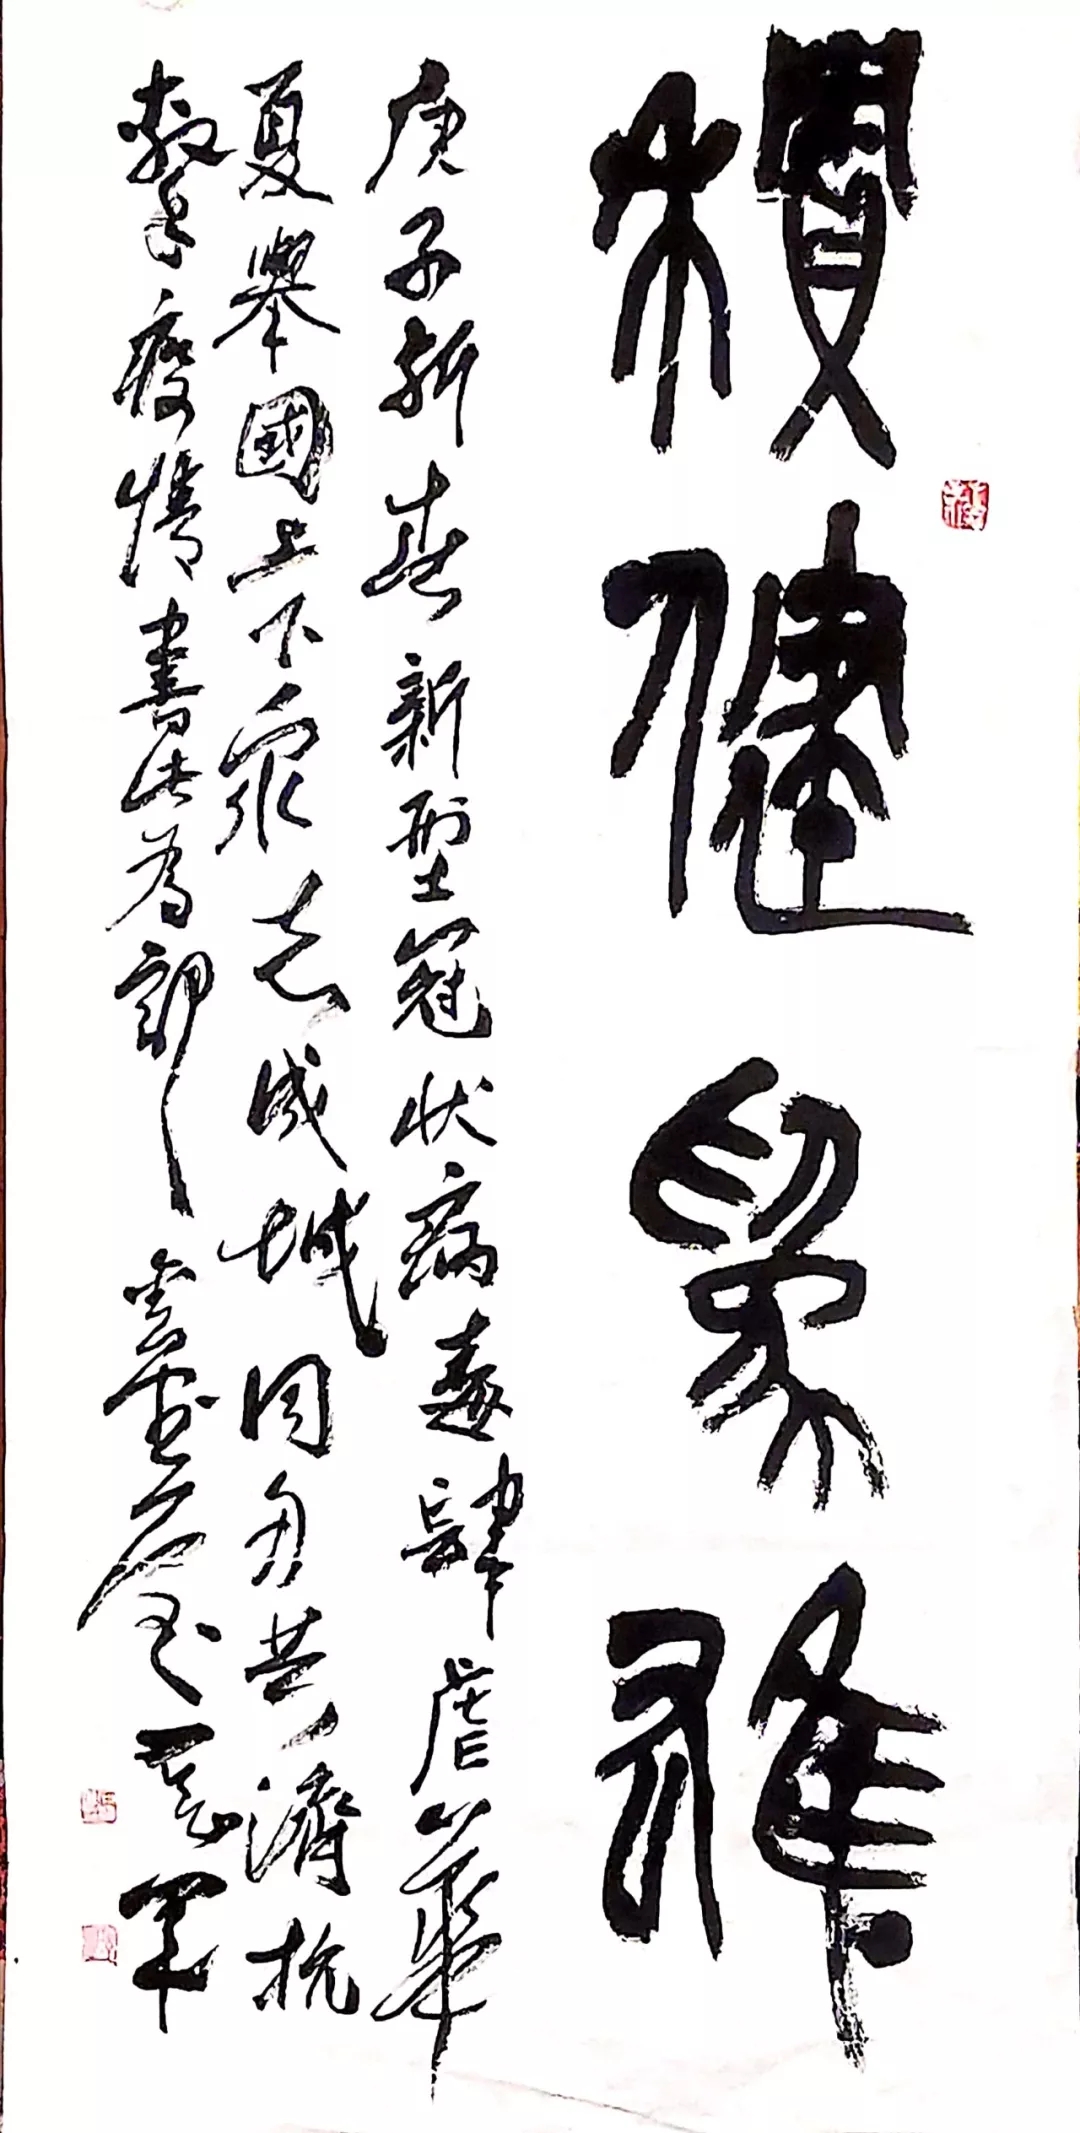 積健為雄
庚子新春新型冠状病毒肆虐華
夏舉國上下衆志成城同舟共濟抗
擊疫情書此為記